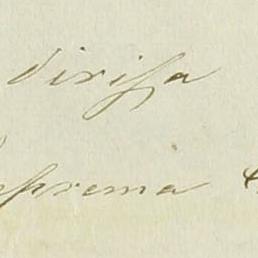 divisa
suprema